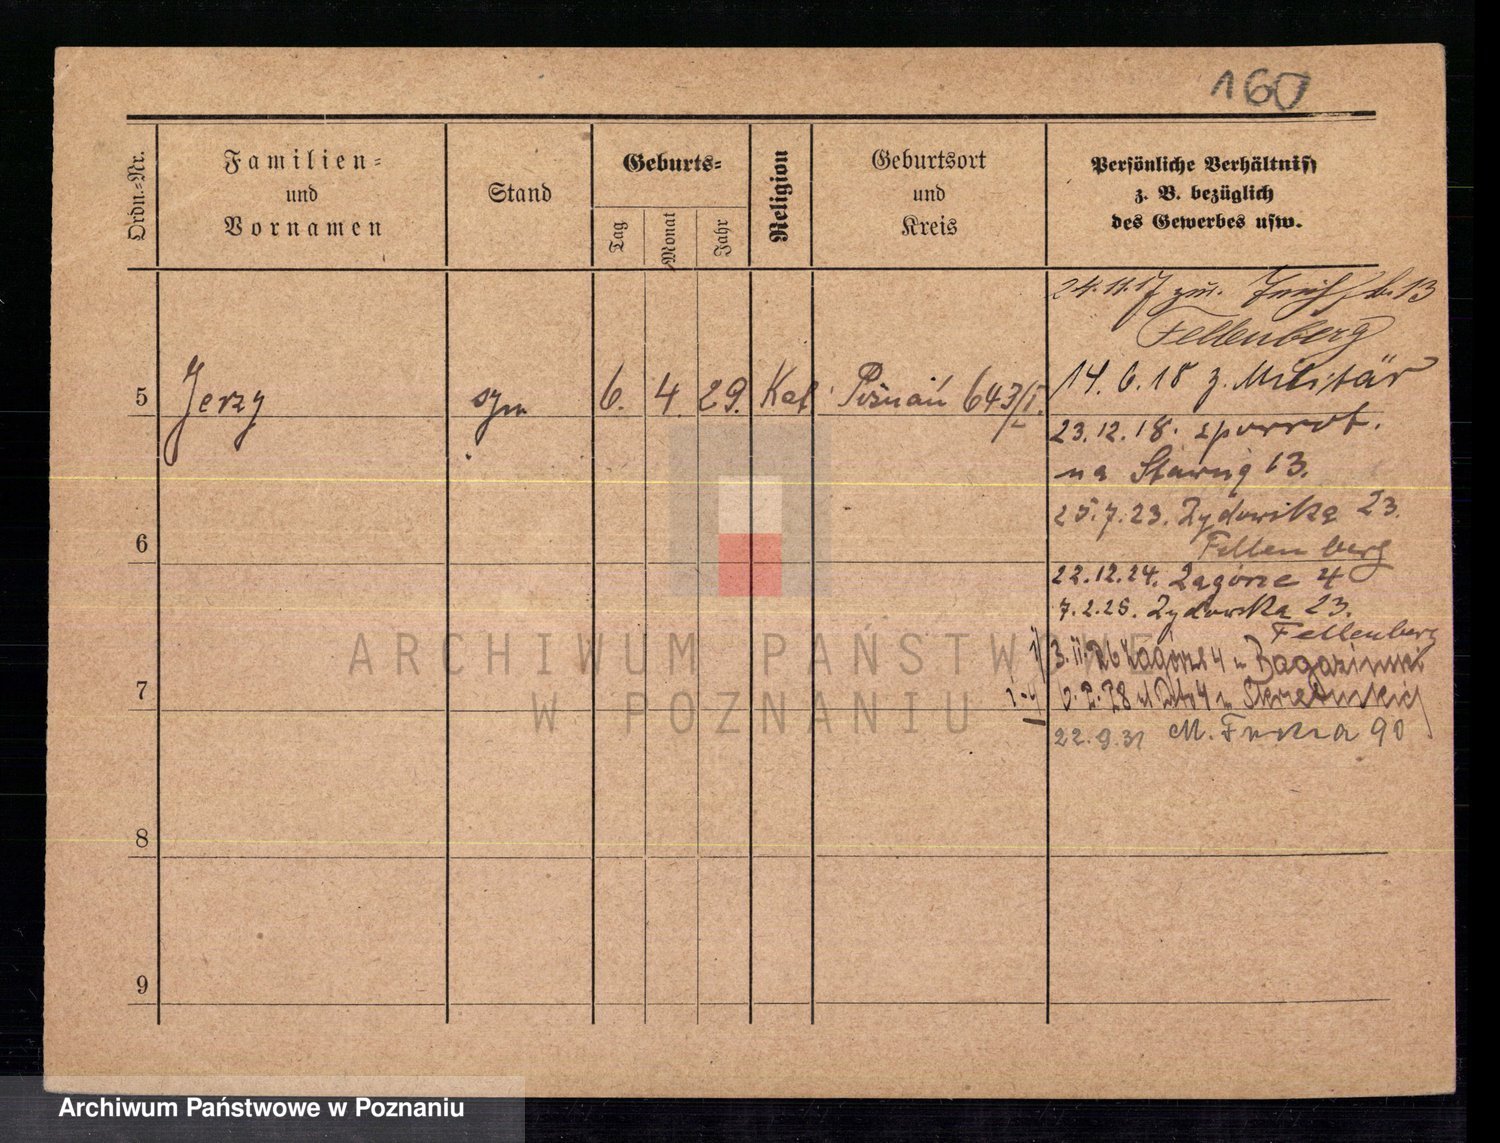 160
Ordn.-Nr.
Familien-
und
Vornamen
Stand
Geburts-
Tag
Monat
Jahr
Religion
Geburtsort
und
Kreis
Persönliche Verhältniss
z. B. bezüglich
des Gewerbes usw.
24.11.17 13
Fellenberg
14.6.18 z. Militär
5 Jerzy syn 6. 4. 29. Kat Poznań 643/I.
23.12.18. spowrot.
na Stawną 13.
25.7.23. Żydowska 23.
6
Fellenberg
22.12.24. Zagórze 4
7.2.25. Żydowska 23.
Fellenberg
3.II.26 Zagórze 4 u
7
6.2.28
22.9.31 M. Focha 90
8
9
ARCHIWUM PAŃSTWOWE
W POZNANIU
Archiwum Państwowe w Poznaniu